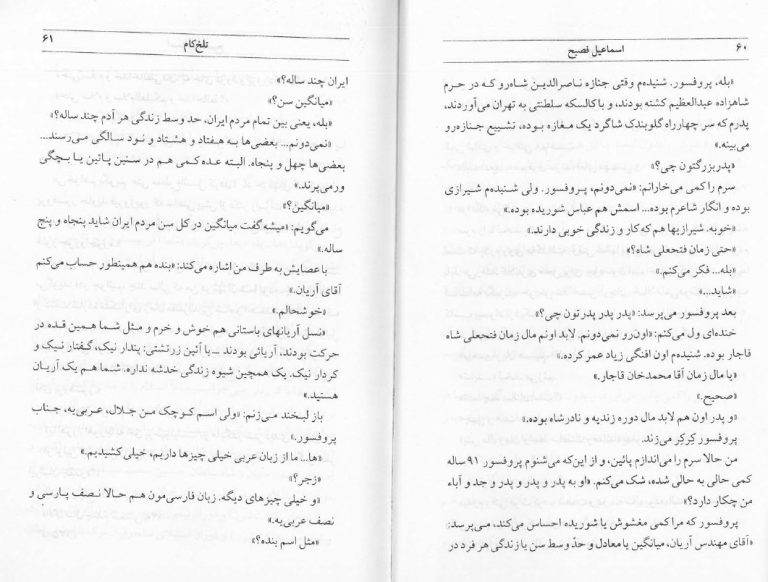 ۶۰
اسماعیل فصیح
«بله، پروفسور. شنیده‌م وقتی جنازه ناصرالدین شاه‌رو که در حرم
شاهزاده عبدالعظیم کشته بودند، و با کالسکه سلطنتی به تهران می‌آوردند،
پدرم که سر چهارراه گلوبندک شاگرد یک مغازه بوده، تشییع جنازه‌رو
می‌بینه.»
«پدربزرگتون چی؟»
سرم را کمی می‌خارانم: «نمی‌دونم، پروفسور. ولی شنیده‌م شیرازی
بوده و انگار شاعرم بوده... اسمش هم عباس شوریده بوده.»
«خوبه. شیرازیها هم که کار و زندگی خوبی دارند.»
«حتی زمان فتحعلی شاه؟»
«بله... فکر می‌کنم.»
«شاید...»
بعد پروفسور می‌پرسد: «پدر پدر پدرتون چی؟»
خنده‌ای ول می‌کنم: «اون‌رو نمی‌دونم. لابد اونم مال زمان فتحعلی شاه
قاجار بوده. شنیده‌م اون افنگی زیاد عمر کرده.»
«یا مال زمان آقا محمدخان قاجار.»
«صحیح.»
«و پدر اون هم لابد مال دوره زندیه و نادرشاه بوده.»
پروفسور کِرکِر می‌زند.
من حالا سرم را می‌اندازم پائین، و از این‌که می‌شنوم پروفسور ۹۱ ساله
کمی حالی به حالی شده، شک می‌کنم. «او به پدر و پدر و پدر و جد و آباء
من چکار دارد؟»
پروفسور که مرا کمی مغشوش یا شوریده احساس می‌کند، می‌پرسد:
«آقای مهندس آریان، میانگین یا معادل و حدّ وسط سن یا زندگی هر فرد در
تلخ‌کام
۶۱
ایران چند ساله؟»
«میانگین سن؟»
«بله، یعنی بین تمام مردم ایران، حد وسط زندگی هر آدم چند ساله؟»
«نمی‌دونم... بعضی‌ها به هفتاد و هشتاد و نود سالگی می‌رسند...
بعضی‌ها چهل و پنجاه. البته عده کمی هم در سنین پائین یا بچگی
ورمی‌پرند.»
«میانگین؟»
می‌گویم: «میشه گفت میانگین در کل سن مردم ایران شاید پنجاه و پنج
ساله.»
با عصایش به طرف من اشاره می‌کند: «بنده هم همینطور حساب می‌کنم
آقای آریان.»
«خوشحالم.»
«نسل آریانهای باستانی هم خوش و خرم و مثل شما همین قده در
حرکت بودند، آریائی بودند ــ با آئین زرتشتی: پندار نیک، گفتار نیک و
کردار نیک. یک همچین شیوه زندگی خدشه نداره. شما هم یک آریان
هستید.»
باز لبخند می‌زنم: «ولی اسم کوچک من جلال، عربی‌یه، جناب
پروفسور.»
«ها... ما از زبان عربی خیلی چیزها داریم، خیلی کشیدیم.»
«زجر؟»
«و خیلی چیزهای دیگه. زبان فارسی‌مون هم حالا نصف پارسی و
نصف عربی‌یه.»
«مثل اسم بنده؟»